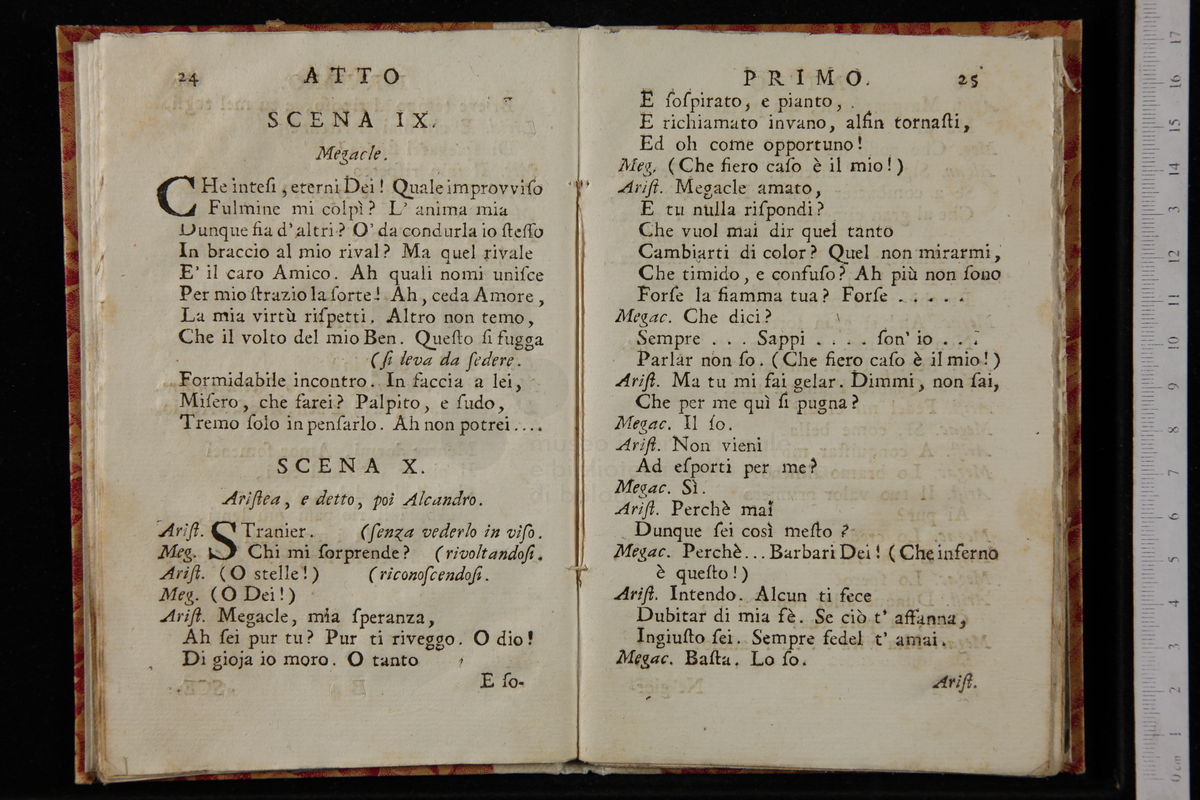 24 ATTO
SCENA IX.
Megacle.
CHe inteſi, eterni Dei! Quale improvviſo
Fulmine mi colpì? L' anima mia
Dunque fia d' altri? O' da condurla io ſteſſo
In braccio al mio rival? Ma quel rivale
E' il caro Amico. Ah quali nomi uniſce
Per mio ſtrazio la ſorte! Ah, ceda Amore,
La mia virtù riſpetti. Altro non temo,
Che il volto del mio Ben. Queſto ſi fugga
(ſi leva da ſedere.
Formidabile incontro. In faccia a lei,
Miſero, che farei? Palpito, e ſudo,
Tremo ſolo in penſarlo. Ah non potrei....
SCENA X.
Ariſtea, e detto, poi Alcandro.
Ariſt. STranier. (ſenza vederlo in viſo.
Meg. Chi mi ſorprende? (rivoltandoſi.
Ariſt. (O stelle!) (riconoſcendoſi.
Meg. (O Dei!)
Ariſt. Megacle, mia ſperanza,
Ah ſei pur tu? Pur ti riveggo. O dio!
Di gioja io moro. O tanto
E ſo-
PRIMO. 25
E ſoſpirato, e pianto,
E richiamato invano, alfin tornaſti,
Ed oh come opportuno!
Meg. (Che fiero caſo è il mio!)
Ariſt. Megacle amato,
E tu nulla riſpondi?
Che vuol mai dir quel tanto
Cambiarti di color? Quel non mirarmi,
Che timido, e confuſo? Ah più non ſono
Forſe la fiamma tua? Forſe . . . . .
Megac. Che dici?
Sempre . . . Sappi . . . . ſon' io . . .
Parlar non ſo. (Che fiero caſo è il mio!)
Ariſt. Ma tu mi fai gelar. Dimmi, non ſai,
Che per me quì ſi pugna?
Megac. Il ſo.
Ariſt. Non vieni
Ad eſporti per me?
Megac. Sì.
Ariſt. Perchè mai
Dunque ſei così meſto?
Megac. Perchè... Barbari Dei! (Che inferno
è queſto!)
Ariſt. Intendo. Alcun ti fece
Dubitar di mia fè. Se ciò t' affanna,
Ingiuſto ſei. Sempre fedel t' amai.
Megac. Baſta. Lo ſo.
Ariſt.